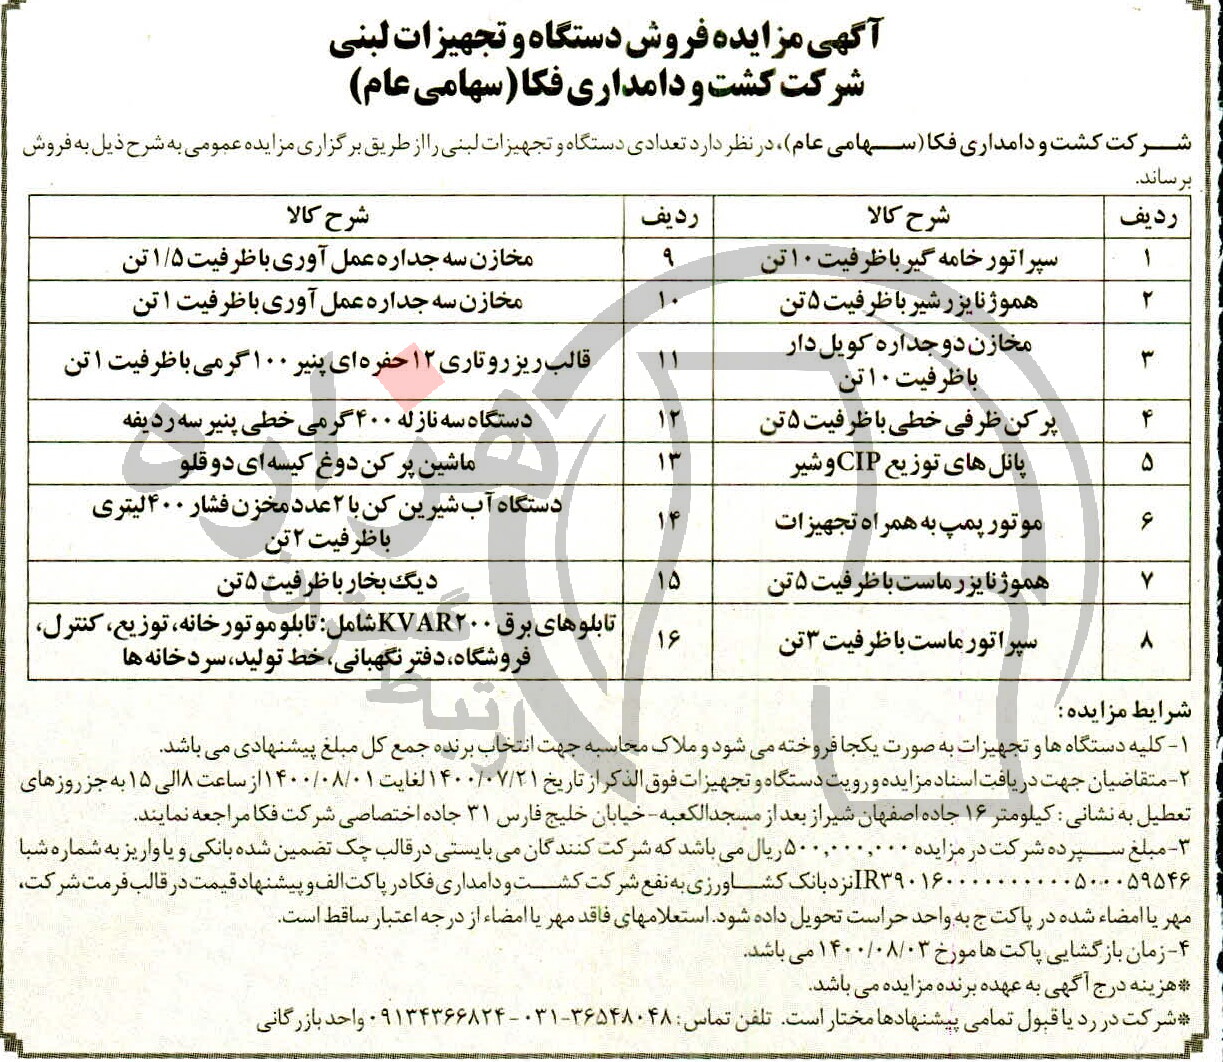 آگهی مزایده فروش دستگاه و تجهیزات لبنی
شرکت کشت و دامداری فکا (سهامی عام)
شرکت کشت و دامداری فکا (سهامی عام)، در نظر دارد تعدادی دستگاه و تجهیزات لبنی را از طریق برگزاری مزایده عمومی به شرح ذیل به فروش
برساند.
ردیف شرح کالا ردیف شرح کالا
۱ سپراتور خامه گیر با ظرفیت ۱۰ تن ۹ مخازن سه جداره عمل آوری با ظرفیت ۱/۵ تن
۲ هموژنایزر شیر با ظرفیت ۵ تن ۱۰ مخازن سه جداره عمل آوری با ظرفیت ۱ تن
۳ مخازن دو جداره کویل دار
با ظرفیت ۱۰ تن
۱۱ قالب ریز روتاری ۱۲ حفره ای پنیر ۱۰۰ گرمی با ظرفیت ۱ تن
۴ پر کن ظرفی خطی با ظرفیت ۵ تن ۱۲ دستگاه سه نازله ۴۰۰ گرمی خطی پنیر سه ردیفه
۵ پانل های توزیع CIP و شیر ۱۳ ماشین پر کن دوغ کیسه ای دو قلو
۶ موتور پمپ به همراه تجهیزات ۱۴ دستگاه آب شیرین کن با ۲ عدد مخزن فشار ۴۰۰ لیتری
با ظرفیت ۲ تن
۷ هموژنایزر ماست با ظرفیت ۵ تن ۱۵ دیگ بخار با ظرفیت ۵ تن
۸ سپراتور ماست با ظرفیت ۳ تن ۱۶ تابلوهای برق KVAR۲۰۰ شامل: تابلو موتور خانه، توزیع، کنترل،
فروشگاه، دفتر نگهبانی، خط تولید، سردخانه ها
شرایط مزایده:
۱- کلیه دستگاه ها و تجهیزات به صورت یکجا فروخته می شود و ملاک محاسبه جهت انتخاب برنده جمع کل مبلغ پیشنهادی می باشد.
۲- متقاضیان جهت دریافت اسناد مزایده و رویت دستگاه و تجهیزات فوق الذکر از تاریخ ۱۴۰۰/۰۷/۲۱ لغایت ۱۴۰۰/۰۸/۰۱ از ساعت ۸ الی ۱۵ به جز روزهای
تعطیل به نشانی: کیلومتر ۱۶ جاده اصفهان شیراز بعد از مسجدالکعبه - خیابان خلیج فارس ۳۱ جاده اختصاصی شرکت فکا مراجعه نمایند.
۳- مبلغ سپرده شرکت در مزایده ۵۰۰,۰۰۰,۰۰۰ ریال می باشد که شرکت کنندگان می بایستی در قالب چک تضمین شده بانکی و یا واریز به شماره شبا
نزد بانک کشاورزی به نفع شرکت کشت و دامداری فکا در پاکت الف و پیشنهاد قیمت در قالب فرمت شرکت،
مهر یا امضاء شده در پاکت ج به واحد حراست تحویل داده شود. استعلامهای فاقد مهر یا امضاء از درجه اعتبار ساقط است.
۴- زمان بازگشایی پاکت ها مورخ ۱۴۰۰/۰۸/۰۳ می باشد.
*هزینه درج آگهی به عهده برنده مزایده می باشد.
*شرکت در رد یا قبول تمامی پیشنهادها مختار است. تلفن تماس: ۳۶۵۴۸۰۴۸-۰۳۱ - ۰۹۱۳۴۳۶۶۸۲۴ واحد بازرگانی
هزاره
ارتباط